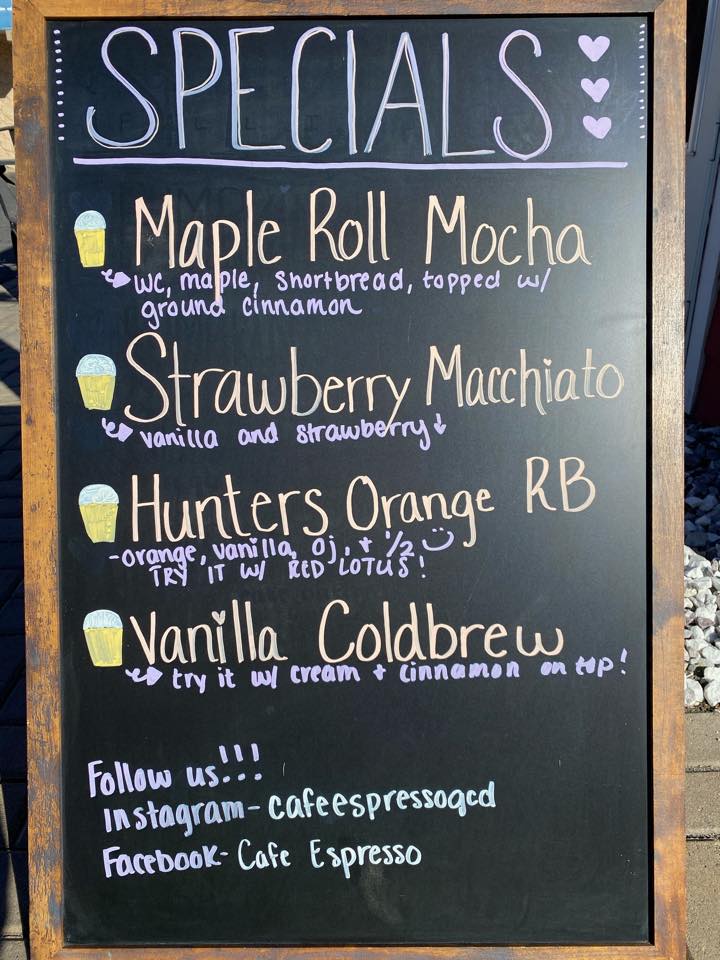 SPECIALS
Maple Roll Mocha
WC, maple, shortbread, topped w/
ground cinnamon
Strawberry Macchiato
vanilla and strawberry
Hunters Orange RB
-orange, vanilla, oj, + 1/2
TRY IT W/ RED LOTUS!
Vanilla Coldbrew
try it w/ cream + cinnamon on top!
Follow us!!!
Instagram- cafeespressoqcd
Facebook- Cafe Espresso